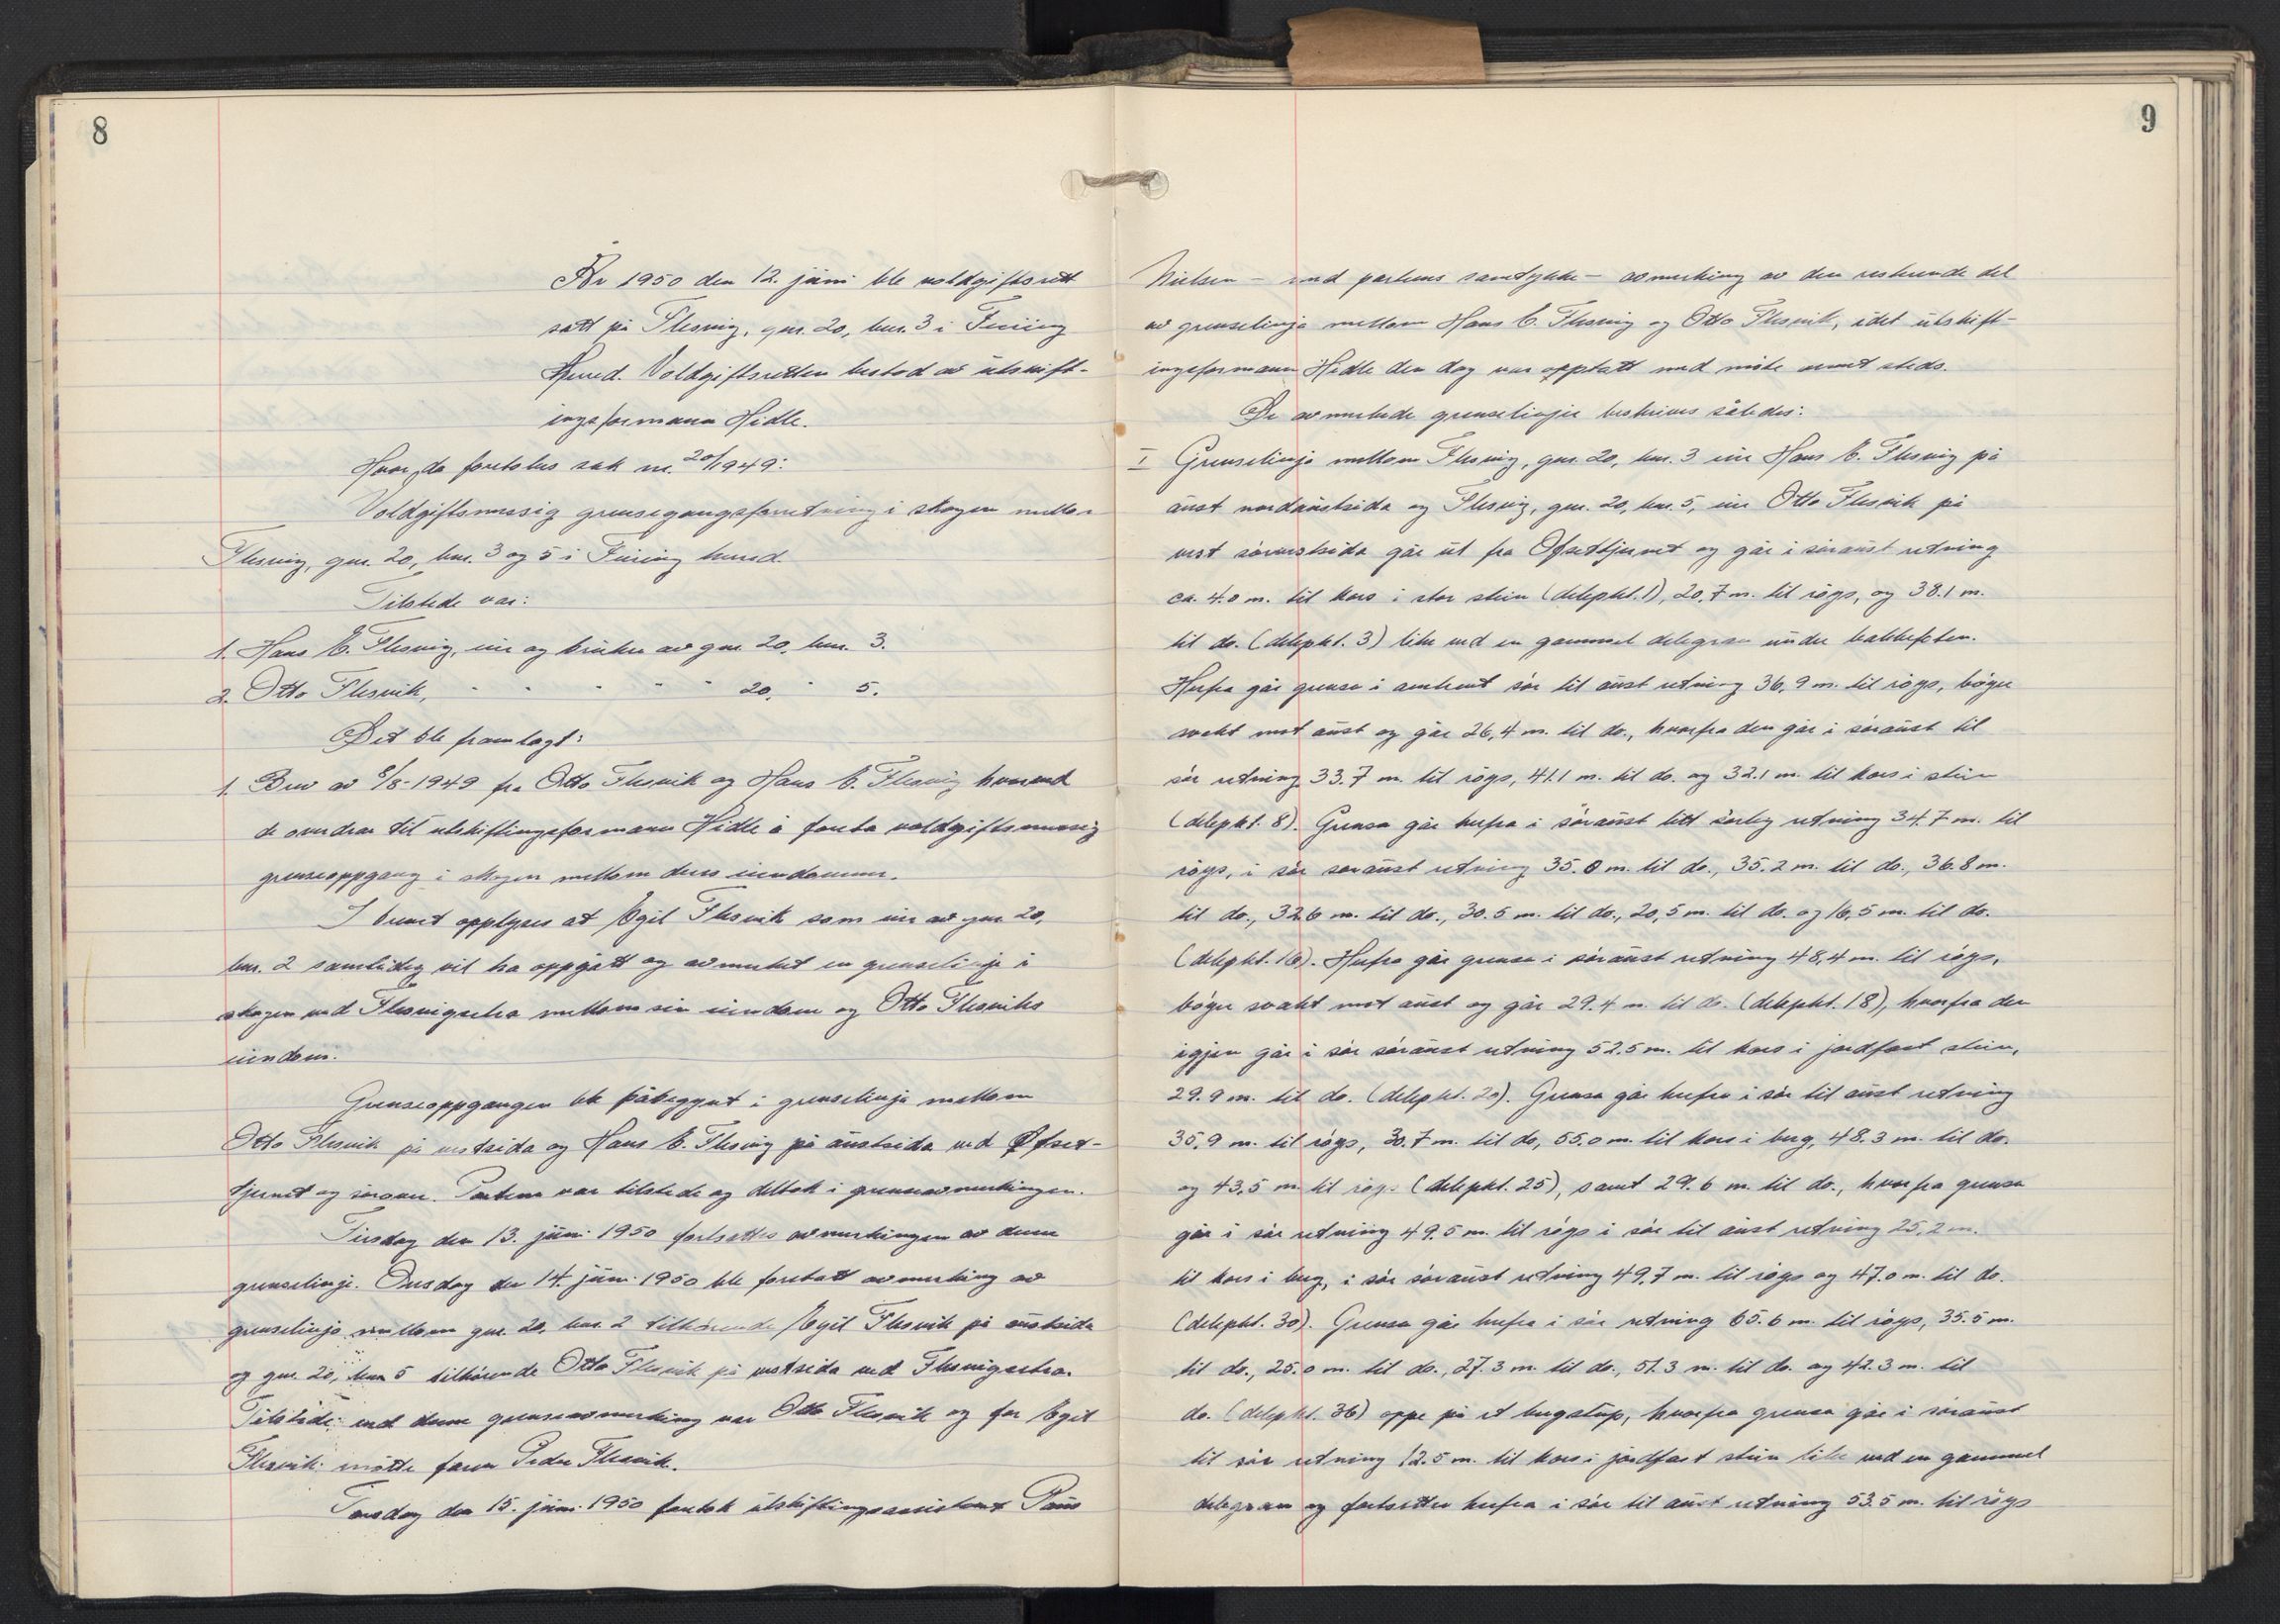 8
År 1950 den 12. juni ble voldgiftsrett
satt på Flesvig, gnr. 20, bnr. 3 i Fuiing
Herred. Voldgiftsretten bestod av utskift-
ingsformann Hidle.
Hvor da foretokes sak nr. 20/1949:
Voldgiftsmessig grensegangsforretning i skogen mellom
Flesvig, gnr. 20, bnr. 3 og 5 i Fuiing herred.
Tilstede var:
1. Hans E. Flesvig, eier og bruker av gnr. 20, bnr. 3.
2. Otto Flesvik, " " " " " 20, " 5.
Det ble framlagt:
1. Brev av 8/8-1949 fra Otto Flesvik og Hans E. Flesvig hvorved
de overdrar til utskiftingsformann Hidle å foreta voldgiftsmessig
grenseoppgang i skogen mellom deres eiendommer.
I brevet opplyses at Egil Flesvik som eier av gnr. 20,
bnr. 2 samtidig vil ha oppgått og avmerket en grenselinje i
skogen ved Flesvigsetra mellom sin eiendom og Otto Flesviks
eiendom.
Grenseoppgangen ble påbegynt i grenselinja mellom
Otto Flesvik på vestsida og Hans E. Flesvig på austsida ved Øfset-
tjernet og sørover. Partene var tilstede og deltok i grenseavmerkingen.
Tirsdag den 13. juni 1950 fortsattes avmerkingen av denne
grenselinje. Onsdag den 14. juni 1950 ble foretatt avmerking av
grenselinja mellom gnr. 20, bnr. 2 tilhørende Egil Flesvik på austsida
og gnr. 20, bnr. 5 tilhørende Otto Flesvik på vestsida ved Flesvigsetra.
Tilstede ved denne grenseavmerking var Otto Flesvik og for Egil
Flesvik møtte faren Peder Flesvik.
Torsdag den 15. juni 1950 foretok utskiftingsassistent Paus
9
Nielsen - med partenes samtykke - avmerking av den resterende del
av grenselinja mellom Hans E. Flesvig og Otto Flesvik, idet utskift-
ingsformann Hidle den dag var opptatt med møte annet steds.
De avmerkede grenselinjer beskrives således:
I Grenselinja mellom Flesvig, gnr. 20, bnr. 3 eier Hans E. Flesvig på
aust nordaustsida og Flesvig, gnr. 20, bnr. 5, eier Otto Flesvik på
vest sørvestsida går ut fra Øfsettjernet og går i søraust retning
ca. 4.0 m. til kors i stor stein (delepkt. 1), 20,7 m. til røys, og 38.1 m.
til do. (delepkt. 3) like ved en gammel delegran under bakkefoten.
Herfra går grensa i omtrent sør til aust retning 36,9 m. til røys, bøyer
svakt mot aust og går 26,4 m. til do., hvorfra den går i søraust til
sør retning 33.7 m. til røys, 41.1 m. til do. og 32.1 m. til kors i stein
(delepkt. 8). Grensa går herfra i søraust litt sørlig retning 34.7 m. til
røys, i sør søraust retning 35.0 m. til do., 35.2 m. til do., 36.8 m.
til do., 32.6 m. til do., 30.5 m. til do., 20,5 m. til do. og 16,5 m. til do.
(delepkt. 16). Herfra går grensa i søraust retning 48,4 m. til røys,
bøyer svakt mot aust og går 29.4 m. til do. (delepkt. 18), hvorfra den
igjen går i sør søraust retning 52.5 m. til kors i jordfast stein,
29.9 m. til do. (delepkt. 20). Grensa går herfra i sør til aust retning
35,9 m. til røys, 30.7 m. til do, 55.0 m. til kors i berg, 48.3 m. til do.
og 43,5 m. til røys (delepkt. 25), samt 29.6 m. til do., hvorfra grensa
går i sør retning 49.5 m. til røys i sør til aust retning 25,2 m.
til kors i berg, i sør søraust retning 49,7 m. til røys og 47.0 m. til do.
(delepkt. 30). Grensa går herfra i sør retning 65.6 m. til røys, 35.5 m.
til do., 25.0 m. til do., 27.3 m. til do., 51.3 m. til do. og 42.3 m. til
do. (delepkt. 36) oppe på et bergstup, hvorfra grensa går i søraust
til sør retning 12.5 m. til kors i jordfast stein like ved en gammel
delegran og fortsetter herfra i sør til aust retning 53.5 m. til røys